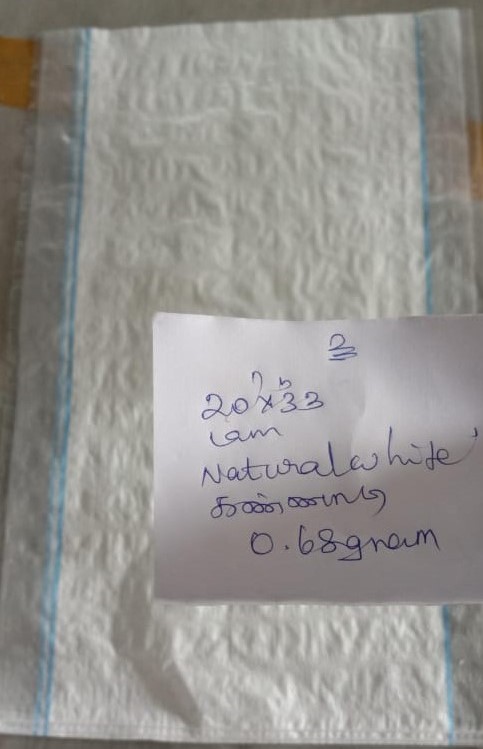 2
20"x33
Lam
Natural white
கண்ணாடி
0.68gram